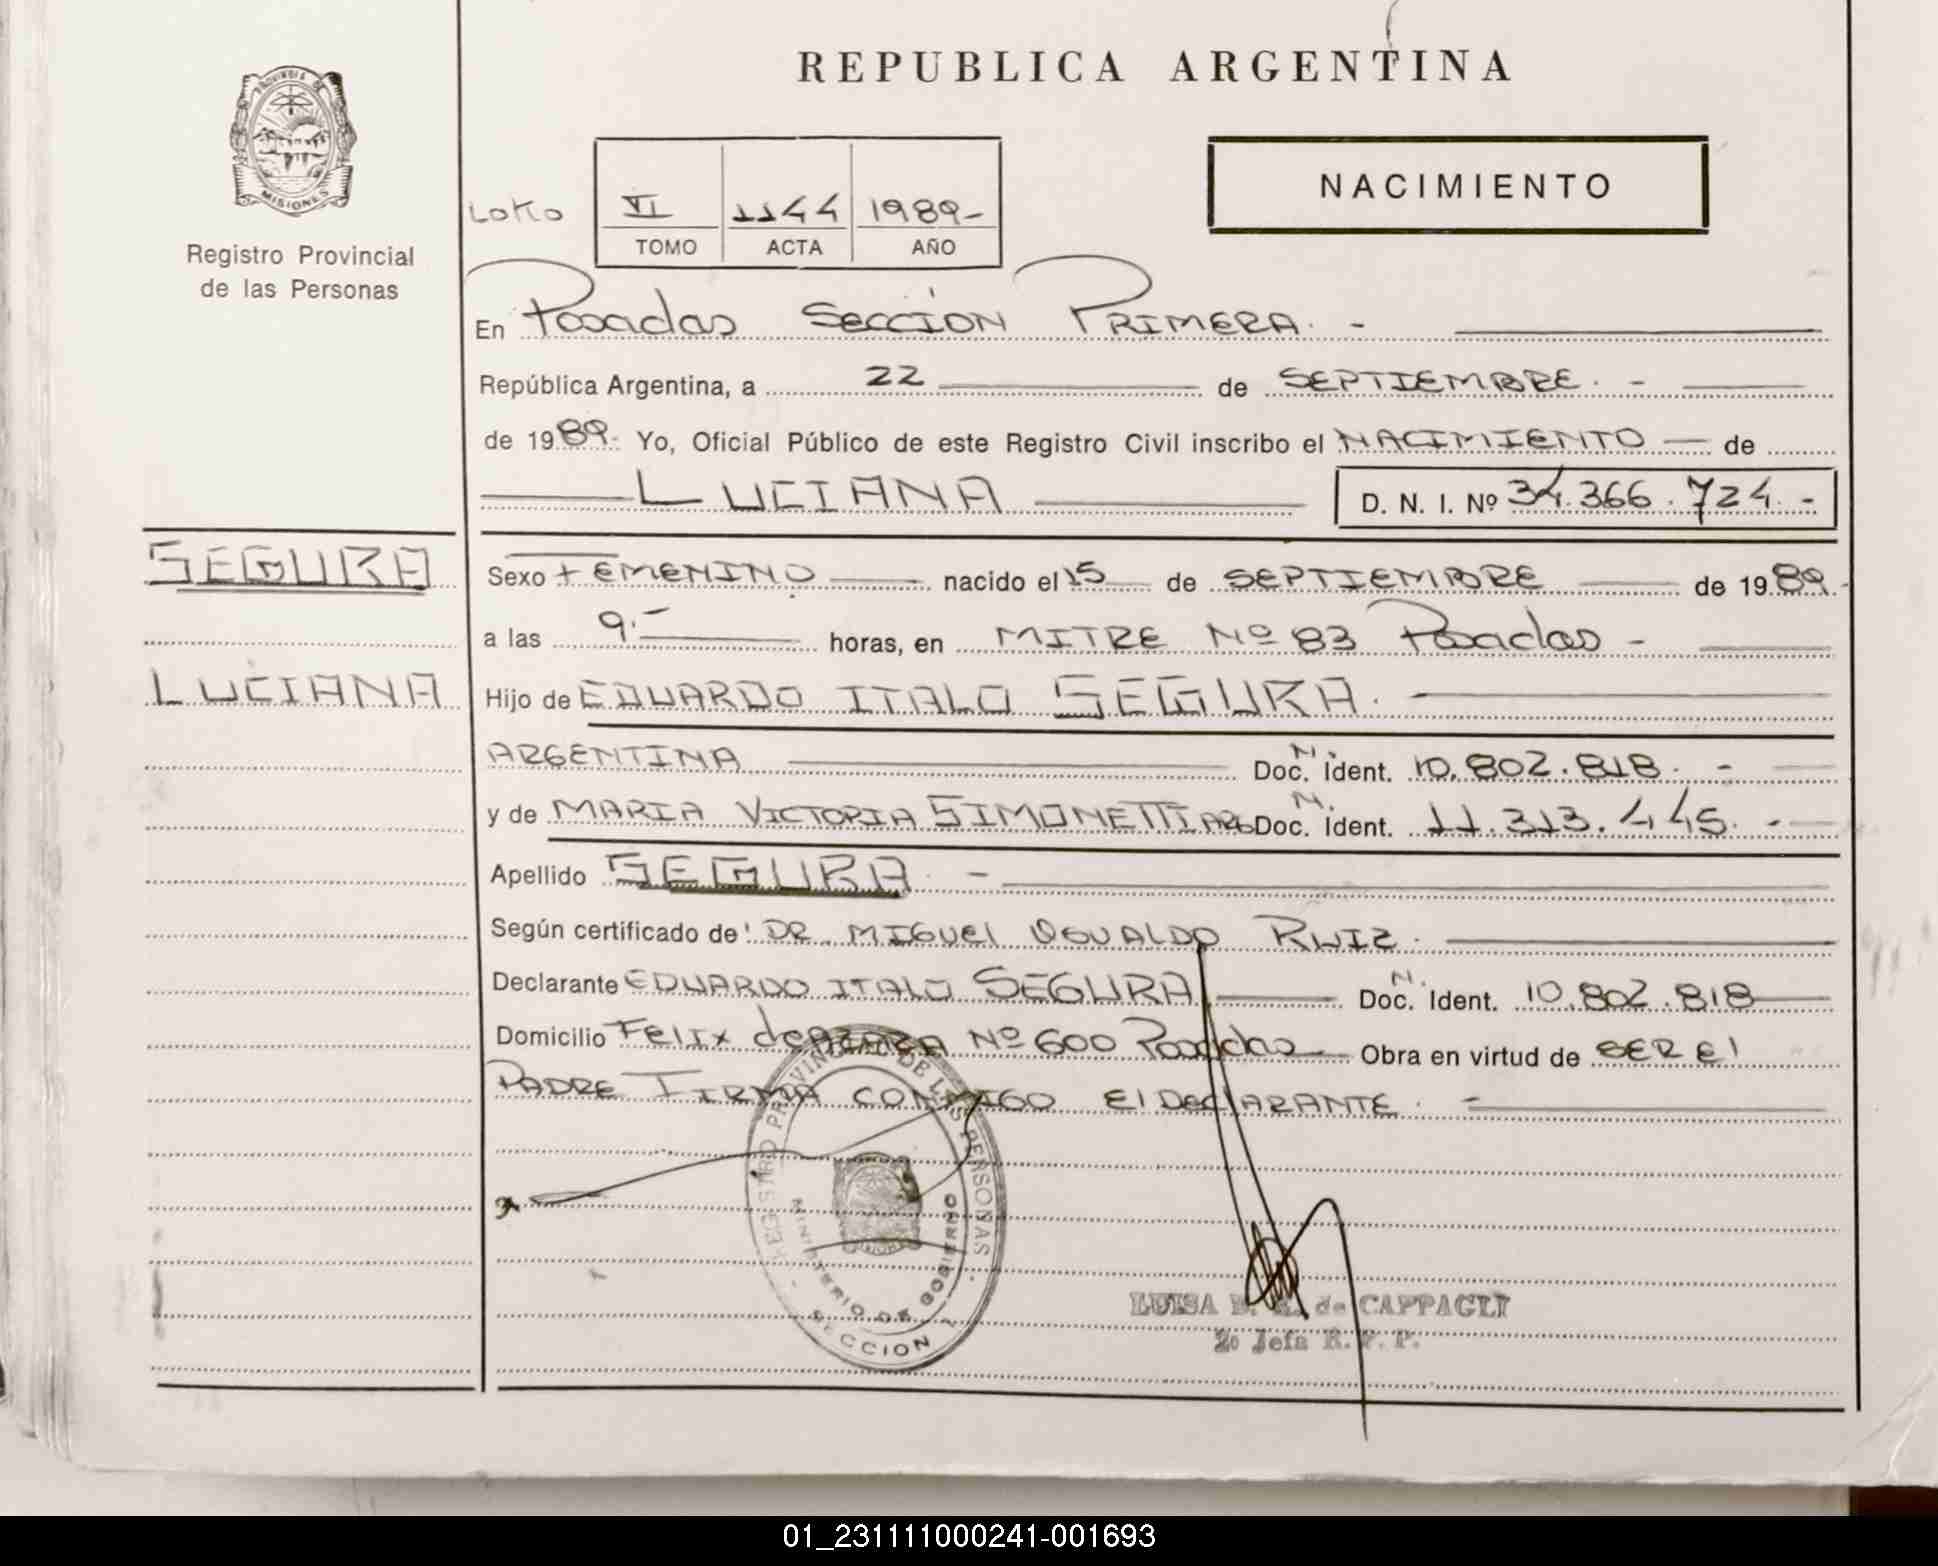 REPUBLICA ARGENTINA
PROVINCIA DE
MISIONES
Registro Provincial
de las Personas
VI 1144 1989-
TOMO ACTA AÑO
NACIMIENTO
En Posadas Sección Primera. -
República Argentina, a 22 de SEPTIEMBRE. -
de 1989.- Yo, Oficial Público de este Registro Civil inscribo el NACIMIENTO de
LUCIANA D. N. I. Nº 34.366.724.-
SEGURA
LUCIANA
Sexo Femenino nacido el 15 de SEPTIEMBRE de 1989.-
a las 9.- horas, en MITRE Nº 83 Posadas -
Hijo de EDUARDO ITALO SEGURA.
ARGENTINA Doc. N. Ident. 10.802.818. -
y de MARIA VICTORIA SIMONETTI ARG Doc. N. Ident. 11.313.445. -
Apellido SEGURA. -
Según certificado de DR. MIGUEl OSVALDO RUIZ.
Declarante EDUARDO ITALO SEGURA Doc. N. Ident. 10.802.818
Domicilio Felix de AZARA Nº 600 Posadas Obra en virtud de SER El
PADRE FIRMA CONMIGO El DeclARANTE. -
REGISTRO PROVINCIAL DE LAS PERSONAS
MINISTERIO DE GOBIERNO
SECCION 1
LUISA de CAPPAGLI
2º Jefa R. P. P.
01_231111000241-001693